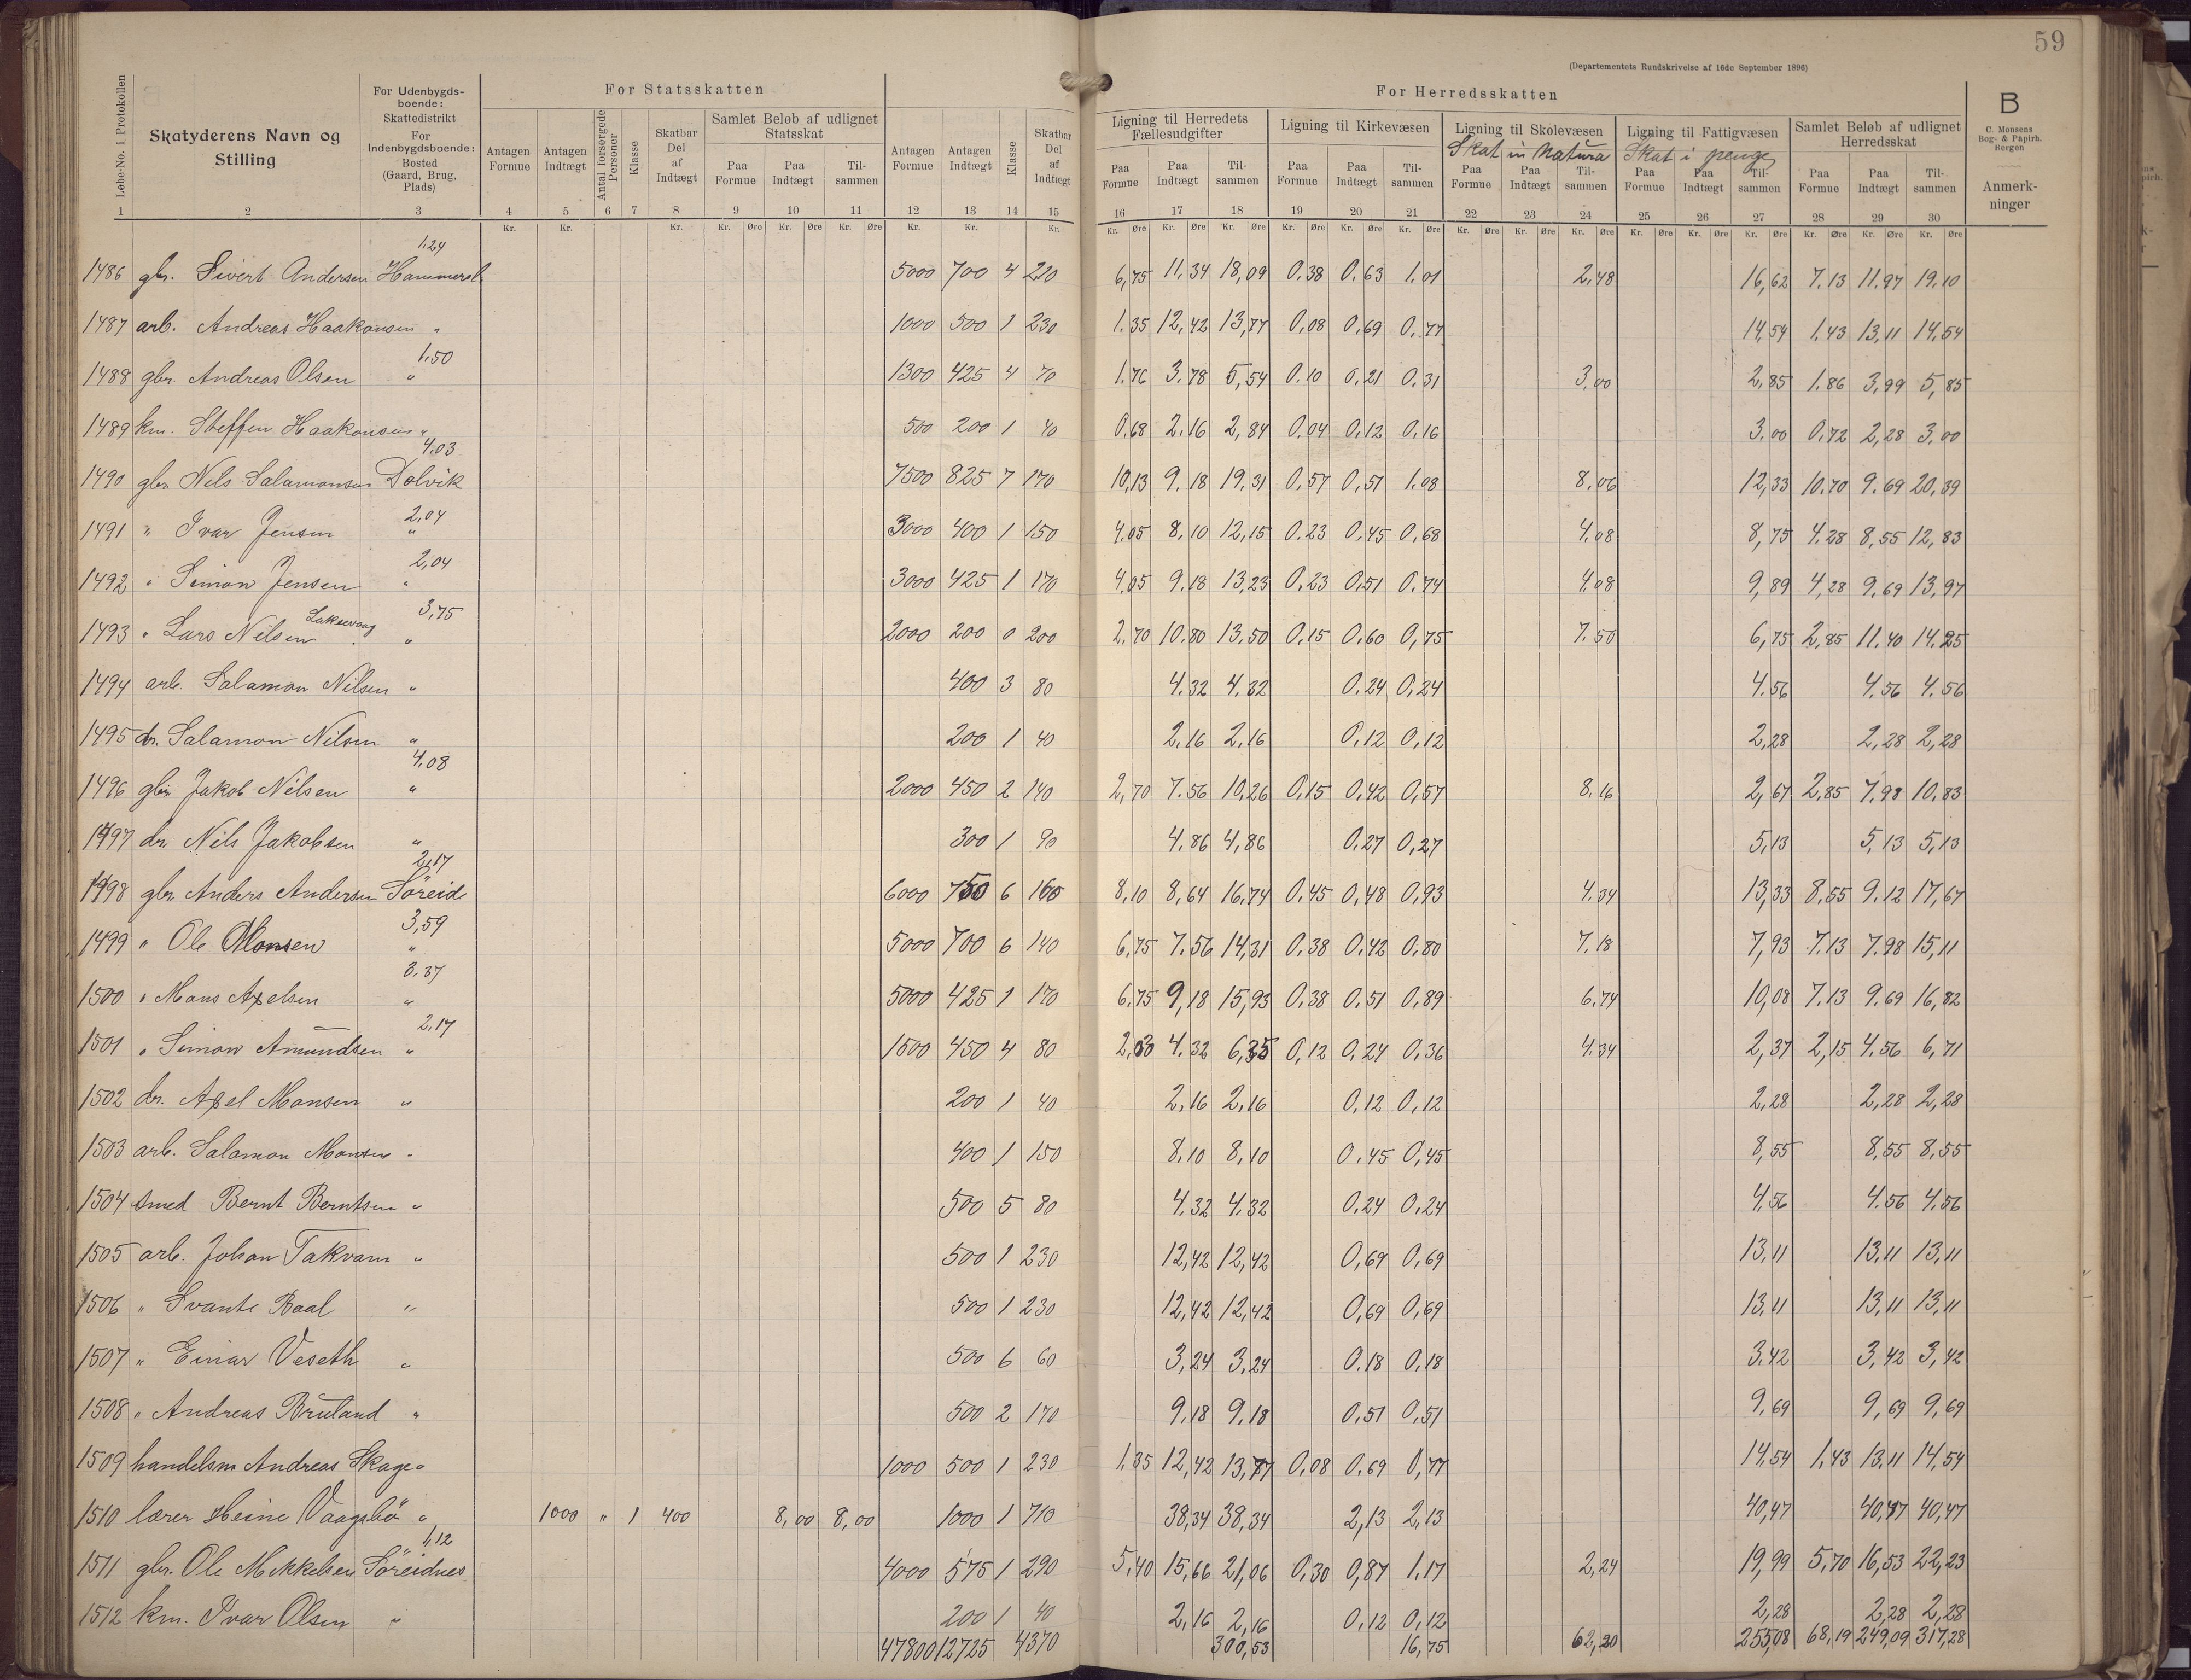 59
(Departementets Rundskrivelse af 16de September 1896)
For Statsskatten
For Herredsskatten
B
C. Monsens Bog- & Papirh. Bergen
Løbe-No. i Protokollen | Skatyderens Navn og Stilling | For Udenbygds-boende: Skattedistrikt For Indenbygdsboende: Bosted (Gaard, Brug, Plads) | Antagen Formue | Antagen Indtægt | Antal forsørgede Personer | Klasse | Skatbar Del af Indtægt | Samlet Beløb af udlignet Statsskat | Paa Formue | Paa Indtægt | Til-sammen | Antagen Formue | Antagen Indtægt | Klasse | Skatbar Del af Indtægt | Ligning til Herredets Fællesudgifter | Paa Formue | Paa Indtægt | Til-sammen | Ligning til Kirkevæsen | Paa Formue | Paa Indtægt | Til-sammen | Ligning til Skolevæsen | Skat in natura | Paa Formue | Paa Indtægt | Til-sammen | Ligning til Fattigvæsen | Skat i penge | Paa Formue | Paa Indtægt | Til-sammen | Samlet Beløb af udlignet Herredsskat | Paa Formue | Paa Indtægt | Til-sammen | Anmerk-ninger
1 2 3 4 5 6 7 8 9 10 11 12 13 14 15 16 17 18 19 20 21 22 23 24 25 26 27 28 29 30
Kr. Kr. Kr. Kr. Øre Kr. Øre Kr. Øre Kr. Kr. Kr. Kr. Øre Kr. Øre Kr. Øre Kr. Øre Kr. Øre Kr. Øre Kr. Øre Kr. Øre Kr. Øre Kr. Øre Kr. Øre Kr. Øre Kr. Øre Kr. Øre Kr. Øre
1,24
1486 gbr. Sivert Andersen Hammersl. 5000 700 4 220 6,75 11,34 18,09 0.38 0.63 1.01 2,48 16,62 7.13 11.97 19.10
1487 arb. Andreas Haakonsen " 1000 500 1 230 1.35 12,42 13,77 0,08 0,69 0,77 14,54 1,43 13,11 14,54
1,50
1488 gbr. Andreas Olsen " 1300 425 4 70 1.76 3.78 5,54 0.10 0.21 0.31 3,00 2,85 1.86 3,99 5,85
1489 km. Steffen Haakonsen " 500 200 1 40 0,68 2.16 2,84 0.04 0,12 0,16 3.00 0,72 2,28 3,00
4,03
1490 gbr. Nels Salamonsen Dolvik 7500 825 7 170 10,13 9,18 19,31 0.57 0,51 1.08 8,06 12,33 10.70 9.69 20,39
2,04
1491 " Ivar Jensen " 3000 400 1 150 4,05 8,10 12,15 0.23 0,45 0,68 4,08 8,75 4.28 8,55 12,83
2,04
1492 " Simon Jensen " 3000 425 1 170 4,05 9.18 13,23 0.23 0,51 0.74 4,08 9,89 4,28 9,69 13,97
3,75
1493 " Lars Nilsen Laksevaag " 2000 200 0 200 2.70 10.80 13,50 0,15 0,60 0,75 7.50 6,75 2,85 11.40 14.25
1494 arb. Salamon Nilsen " 400 3 80 4.32 4.32 0.24 0,24 4.56 4.56 4.56
1495 dr. Salamon Nilsen " 200 1 40 2.16 2,16 0,12 0,12 2,28 2,28 2,28
4,08
1496 gbr. Jakob Nilsen " 2000 450 2 140 2,70 7.56 10,26 0,15 0,42 0,57 8,16 2,67 2,85 7,98 10,83
1497 dr. Nils Jakobsen " 300 1 90 4,86 4,86 0,27 0,27 5,13 5,13 5,13
2,17
1498 gbr. Anders Andersen Söreide 6000 750 6 160 8,10 8,64 16,74 0,45 0,48 0,93 4.34 13,33 8,55 9.12 17,67
3,59
1499 " Ole Monsen " 5000 700 6 140 6,75 7.56 14,31 0,38 0.42 0,80 7.18 7,93 7.13 7.98 15,11
3.37
1500 " Mons Axelsen " 5000 425 1 170 6,75 9,18 15,93 0,38 0,51 0,89 6,74 10,08 7.13 9.69 16,82
2,17
1501 " Simon Amundsen " 1500 450 4 80 2,03 4.32 6,35 0,12 0,24 0,36 4.34 2,37 2,15 4.56 6,71
1502 dr. Axel Monsen " 200 1 40 2,16 2,16 0,12 0,12 2,28 2,28 2,28
1503 arb. Salamon Monsen " 400 1 150 8,10 8,10 0.45 0,45 8,55 8,55 8,55
1504 smed Bernt Berntsen " 500 5 80 4.32 4.32 0.24 0,24 4,56 4.56 4,56
1505 arb. Johan Takvam " 500 1 230 12,42 12,42 0,69 0,69 13,11 13,11 13,11
1506 " Svante Raal " 500 1 230 12,42 12,42 0,69 0,69 13,11 13,11 13,11
1507 " Einar Veseth " 500 6 60 3,24 3,24 0.18 0,18 3.42 3,42 3,42
1508 " Andreas Bruland " 500 2 170 9.18 9,18 0.51 0,51 9,69 9,69 9,69
1509 handelsm Andreas Skage " 1000 500 1 230 1.35 12,42 13,77 0,08 0.69 0,77 14,54 1,43 13,11 14,54
1510 lærer Heine Vaagsbö " 1000 " 1 400 8,00 8,00 1000 1 710 38,34 38,34 2,13 2,13 40,47 40,47 40,47
1,12
1511 gbr. Ole Mikkelsen Söreidnes 4000 575 1 290 5,40 15,66 21,06 0,30 0,87 1,17 2,24 19,99 5,70 16,53 22,23
1512 km. Ivar Olsen " 200 1 40 2,16 2,16 0,12 0,12 2,28 2,28 2,28
47800 12725 4370 300,53 16,75 62,20 255,08 68,19 249,09 317,28